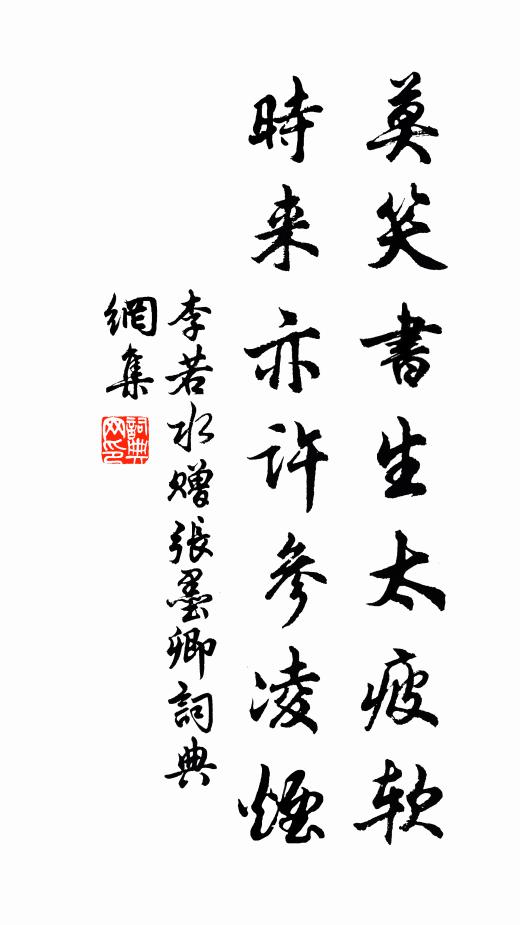 莫笑書生太疲软
時来亦許參凌煙
李若水贈張墨卿詞典
網集
詞典
网印